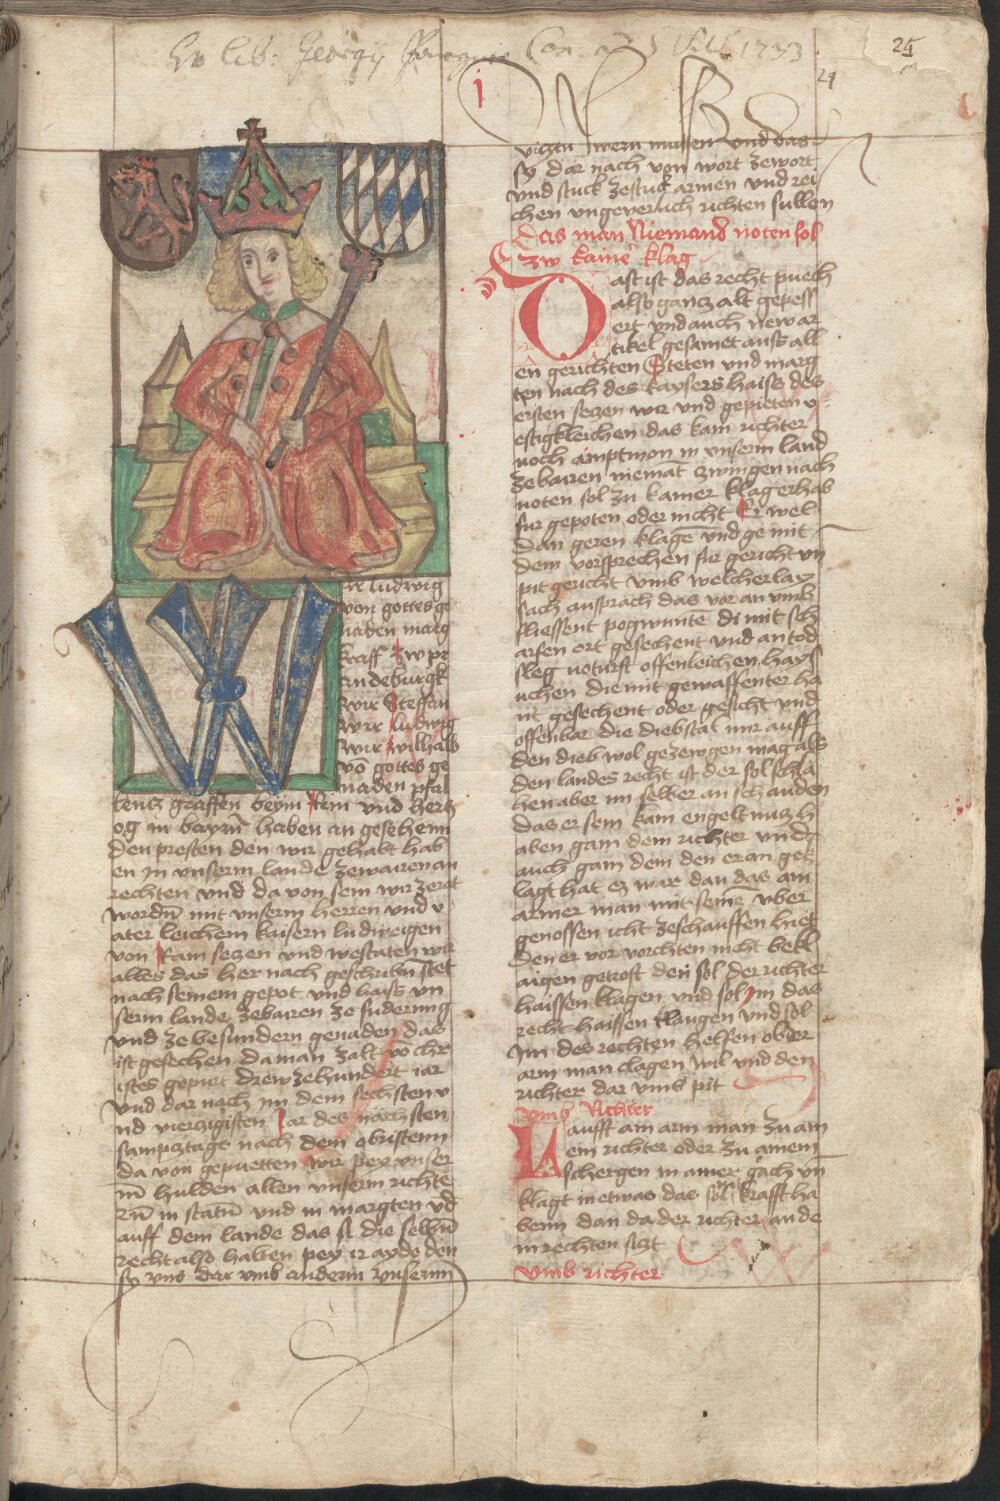 Ex lib: Georgij
1733
25
24
i
W
ir ludwig
von gottes ge
naden marg
kraff zw pr
andeburgk
wir Steffan
wir ludwig
wir wilhalb
vō gottes ge
naden pfal
lentz graffen beym Rein vnd hertz
og in bayrn̄ haben an gesehenn
den presten den wir gehabt hab
en in vnserm lande ze bairen an
rechten vnd da von sein wir ze rat
wordn̄ mit vnserm herren vnd v
ater leichem kaisern ludweigen
von Ram setzen vnd westaten wir
alles das her nach geschribn̄ stet
nach seinem gepot vnd haiss vn
serm lande ze bairen ze fuderung
vnd ze besundern genaden das
ist gesechen da man zalt vo chr
istes gepurt drewzehundert iar
vnd dar nach im dem sechsten v
nd vierzigisten Jar des nachsten
sampztage nach dem obristenn
da von gepuetten wir pey vnser
n̄ hulden allen vnserm richte
rn̄ in statn̄ vnd in margten vd
auff dem lande das si die selbn̄
recht also halten pey ir ayde den
sy vns dar vmb anderm vnserm
vigtn swern mussen vnd das
sy dar nach von wort ze wort
vnd stuck ze stuck armen vnd rei
chen vngeverlich richten sullen
Das man Niemand noten sol
zw kainer klag
Dast ist das recht puech
also gantz alt gepess
ert vnd auch new ar
tikel gesamet auss all
en gerichten Steten vnd marg
ten nach des kaysers haiss des
ersten setzen wir vnd gepieten v
estigkleichen das kain richter
noch amptmon in vnserm land
ze bairen niemāt zwingen nach
noten sol zu kainer klag er hab
fur gepoten oder nicht Er wel
dan geren klagē vnd ge mit
dem vorsprechen fur gericht vn
pit gericht vmb welcherlay
sach ansprach das vor an vmb
fliessent pogwuntē di mit sch
arfen ort gesechent vnd an tod
sleg noturft offenleichen hays
uchen die mit gewaffenter ha
nt gesechent oder gesicht vnd
offenbar die diebstal nur auff
den dieb wol gezewgen mag als
den landes recht ist der sol schla
hen aber im selber an sch anden
das er sein kain engeltnuzz h
aben gain dem richter vnd
auch gain dem den er an geb
lagt hat ez war dan das ain
armer man mit seinē vber
genossen icht ze schauffen hiet
den er vor vorchten nicht bekl
aigen getrost den sol der richter
haissen klagen vnd sol im das
recht haissen klaugen vnd sol
Im des rechten helfen ob der
arm man clagen wil vnd den
richter dar vmb pit
vmb Richter
Laufft ain arm man zu ain
ein richter oder zu ainem
schergen in ainer gäch vn
klagt in etwas das sol krafft ha
benn dan da der richter an de
m rechten sizt
vmb richter